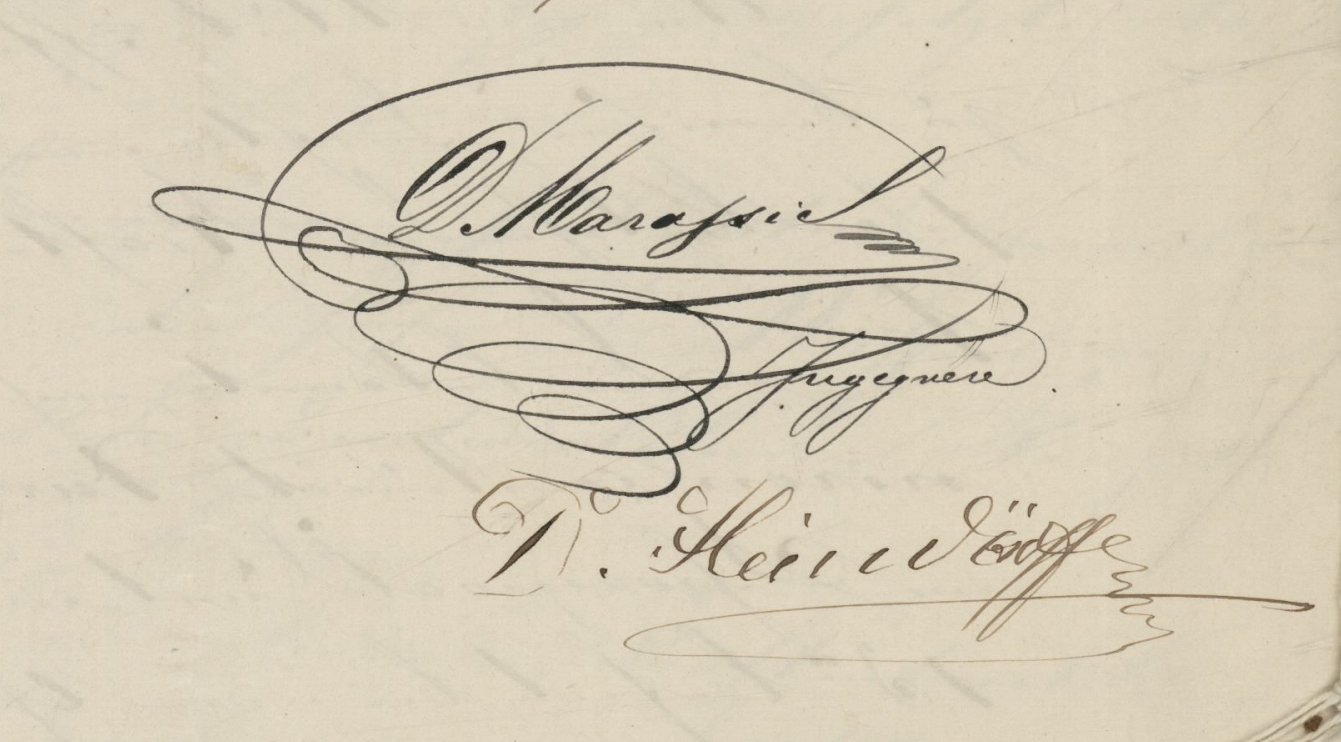 D. Marassich
Ingegnere
Dr. Heindörffer